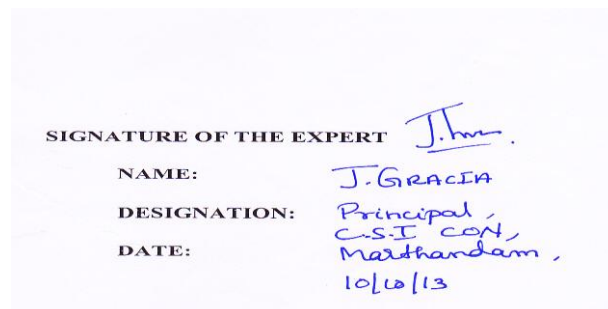 SIGNATURE OF THE EXPERT J.
NAME: J. GRACIA
DESIGNATION: Principal,
C.S.I CON,
DATE: Marthandam,
10/10/13